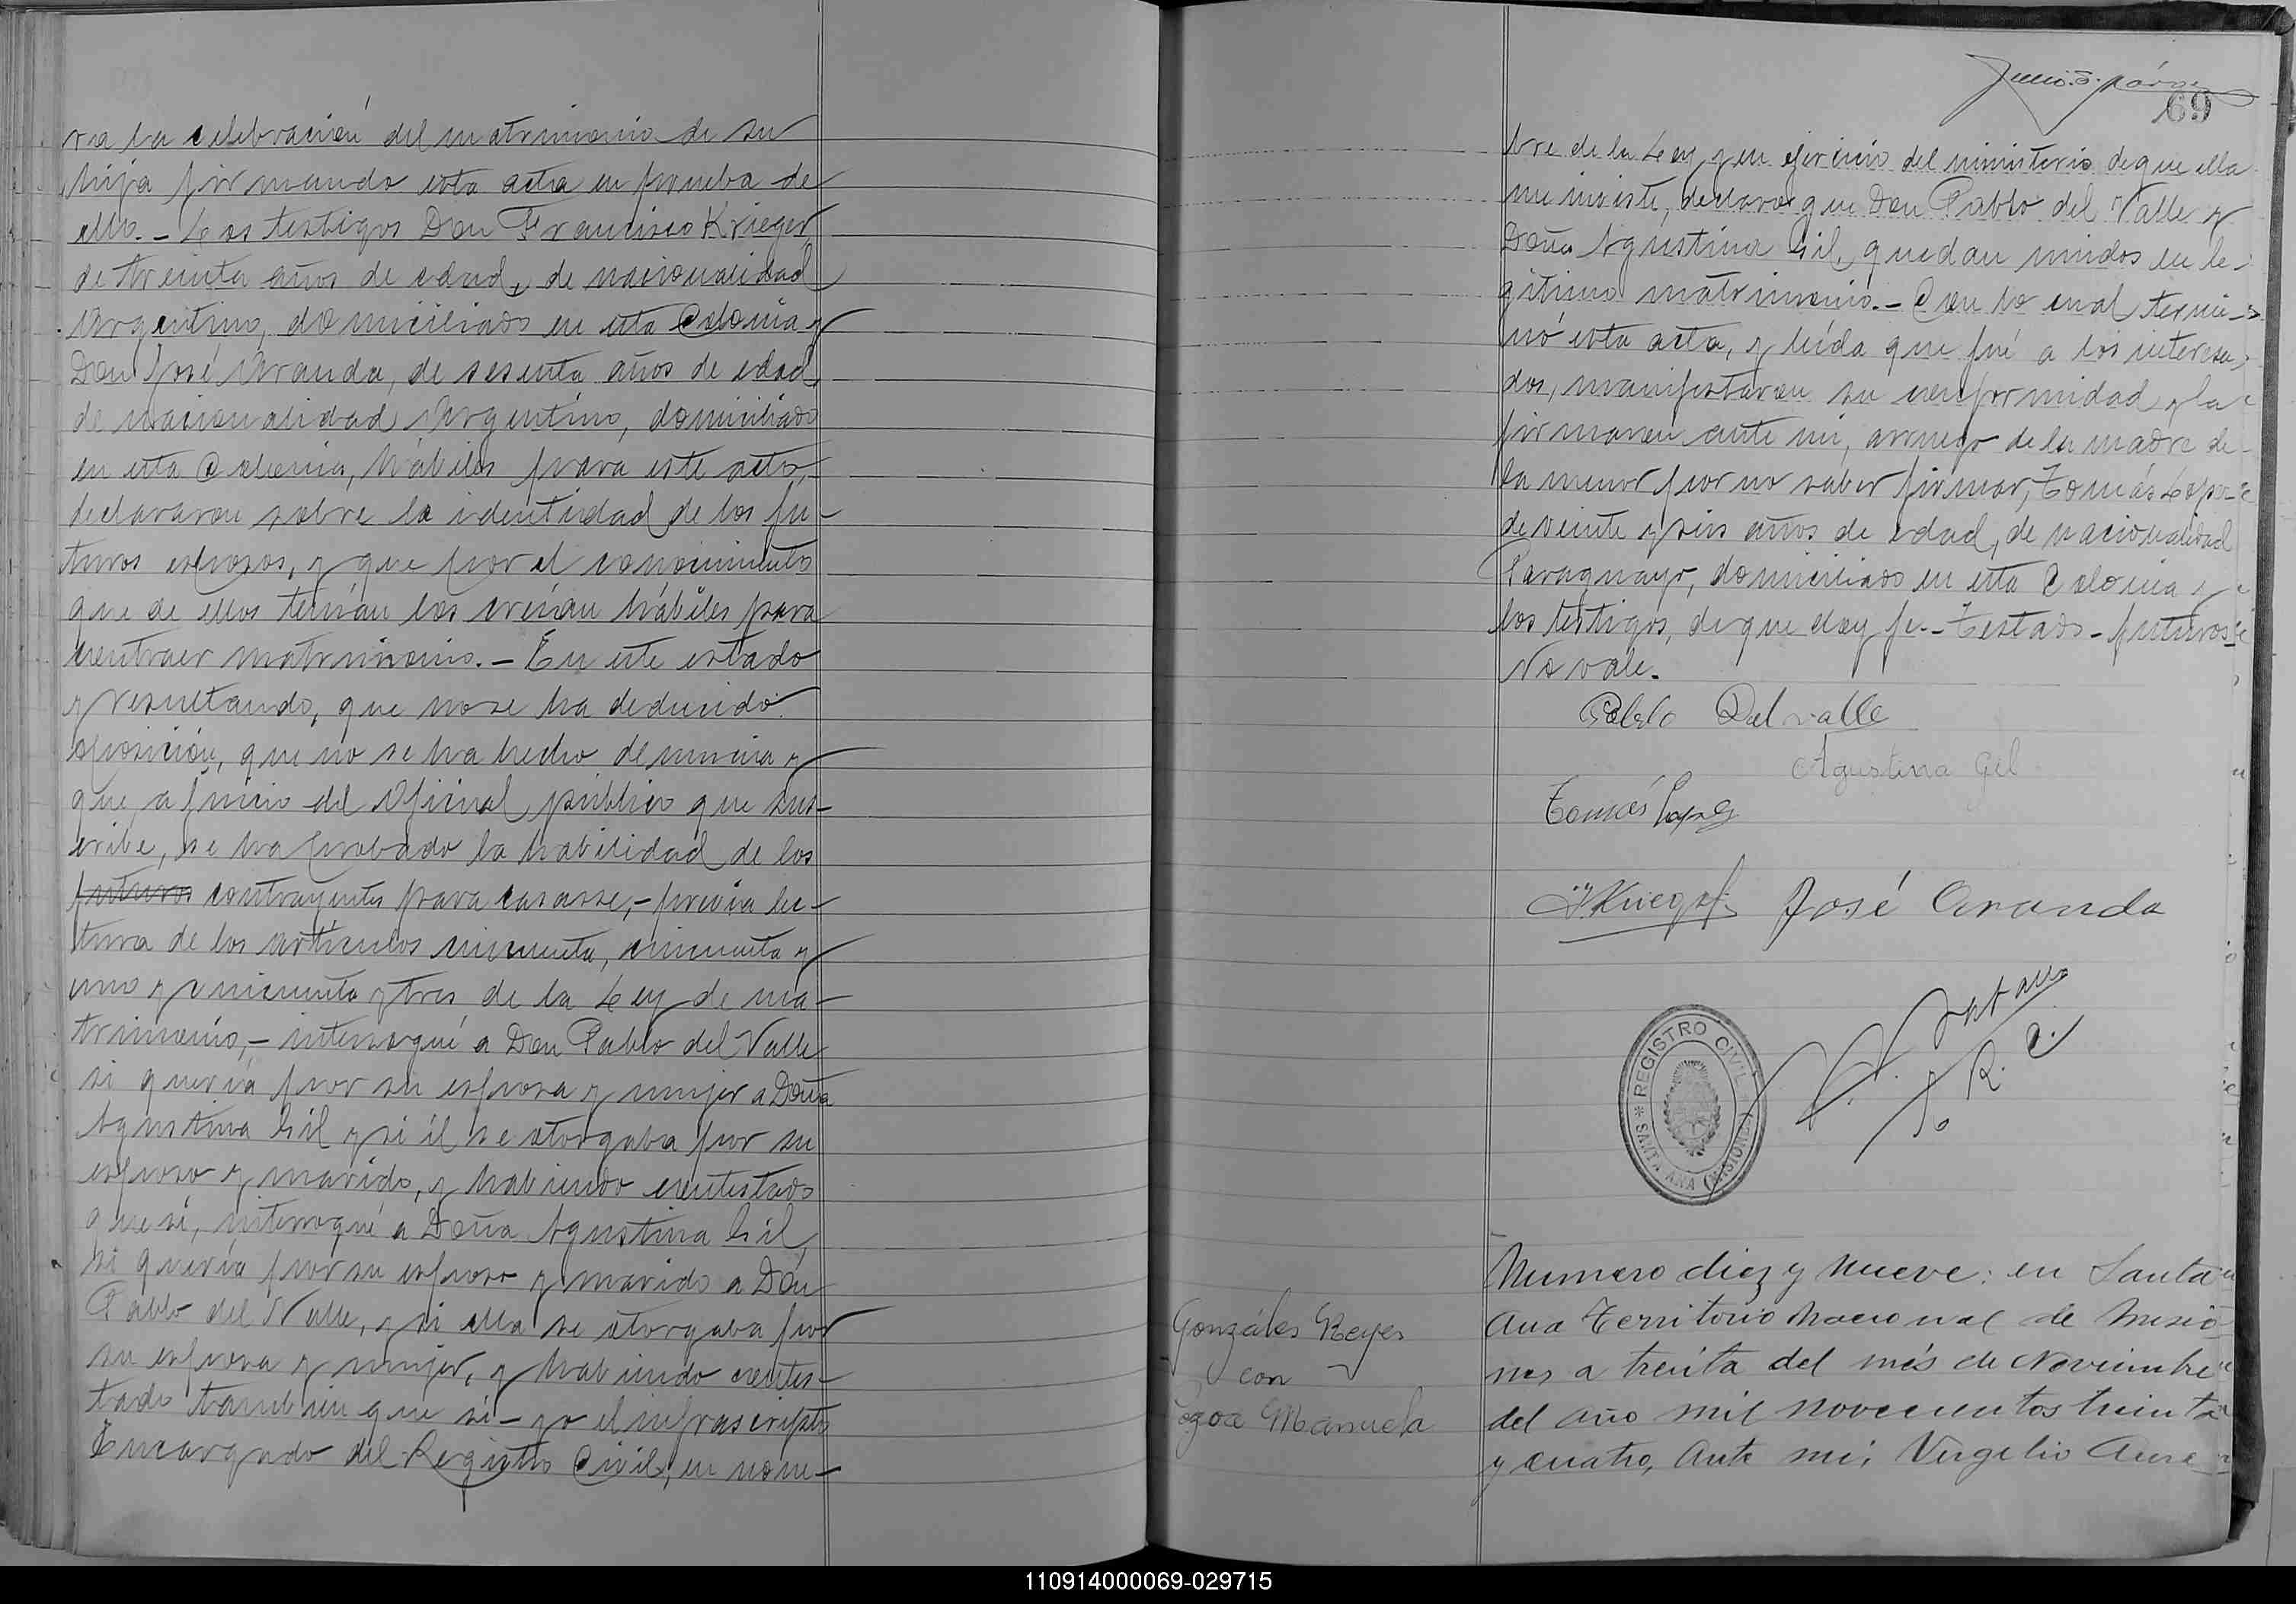 ra la celebración del matrimonio de su
hija firmando esta acta en prueba de
ello.- Los testigos Don Francisco Krieger,
de treinta años de edad, de nacionalidad
Argentino, domiciliado en esta Colonia y
Don José Aranda, de sesenta años de edad,
de nacionalidad Argentino, domiciliado
en esta Colonia, hábiles para este acto,
declararon sobre la identidad de los fu-
turos esposos, y que por el conocimiento
que de ellos tenían los creían hábiles para
contraer matrimonio.- En este estado
y resultando, que no se ha deducido
oposición, que no se ha hecho denuncia y
que a juicio del Oficial público que sus-
cribe, se ha probado la habilidad de los
futuros contrayentes para casarse,- previa lec-
tura de los artículos cincuenta, cincuenta y
uno y cincuenta y tres de la Ley de ma-
trimonio,- interrogué a Don Pablo del Valle
si quería por su esposa y mujer a Doña
Agustina Gil y si él se otorgaba por su
esposo y marido, y habiendo contestado
que sí, interrogué a Doña Agustina Gil,
si quería por su esposo y marido a Don
Pablo del Valle, y si ella se otorgaba por
su esposa y mujer, y habiendo contes-
tado tambien que sí- yo el infrascripto
Encargado del Registro Civil, en nom-
69
bre de la Ley y en ejercicio del ministerio de que ella
me inviste, declaro que Don Pablo del Valle y
Doña Agustina Gil, quedan unidos en le-
gitimo matrimonio.- Con lo cual termi-
nó esta acta, y leída que fué a los interesa-
dos, manifestaron su conformidad y la
firmaron ante mi, a ruego de la madre de
la menor por no saber firmar, Tomás Lopez
de veinte y seis años de edad, de nacionalidad
Paraguayo, domiciliado en esta Colonia y
los testigos, de que doy fe.- Testado- futuros-
No vale.
Pablo Delvalle
Agustina Gil
Tomás Lopez
Krieger José Aranda
REGISTRO CIVIL
SANTA ANA (MISIONES)
J. R. C.
Numero diez y nueve: en Santa
Ana Territorio Nacional de Misio-
nes a treinta del més de Noviembre
del año mil novecientos treinta
y cuatro, Ante mi, Virgilio
Gonzáles Reyes
con
Manuela
110914000069-029715